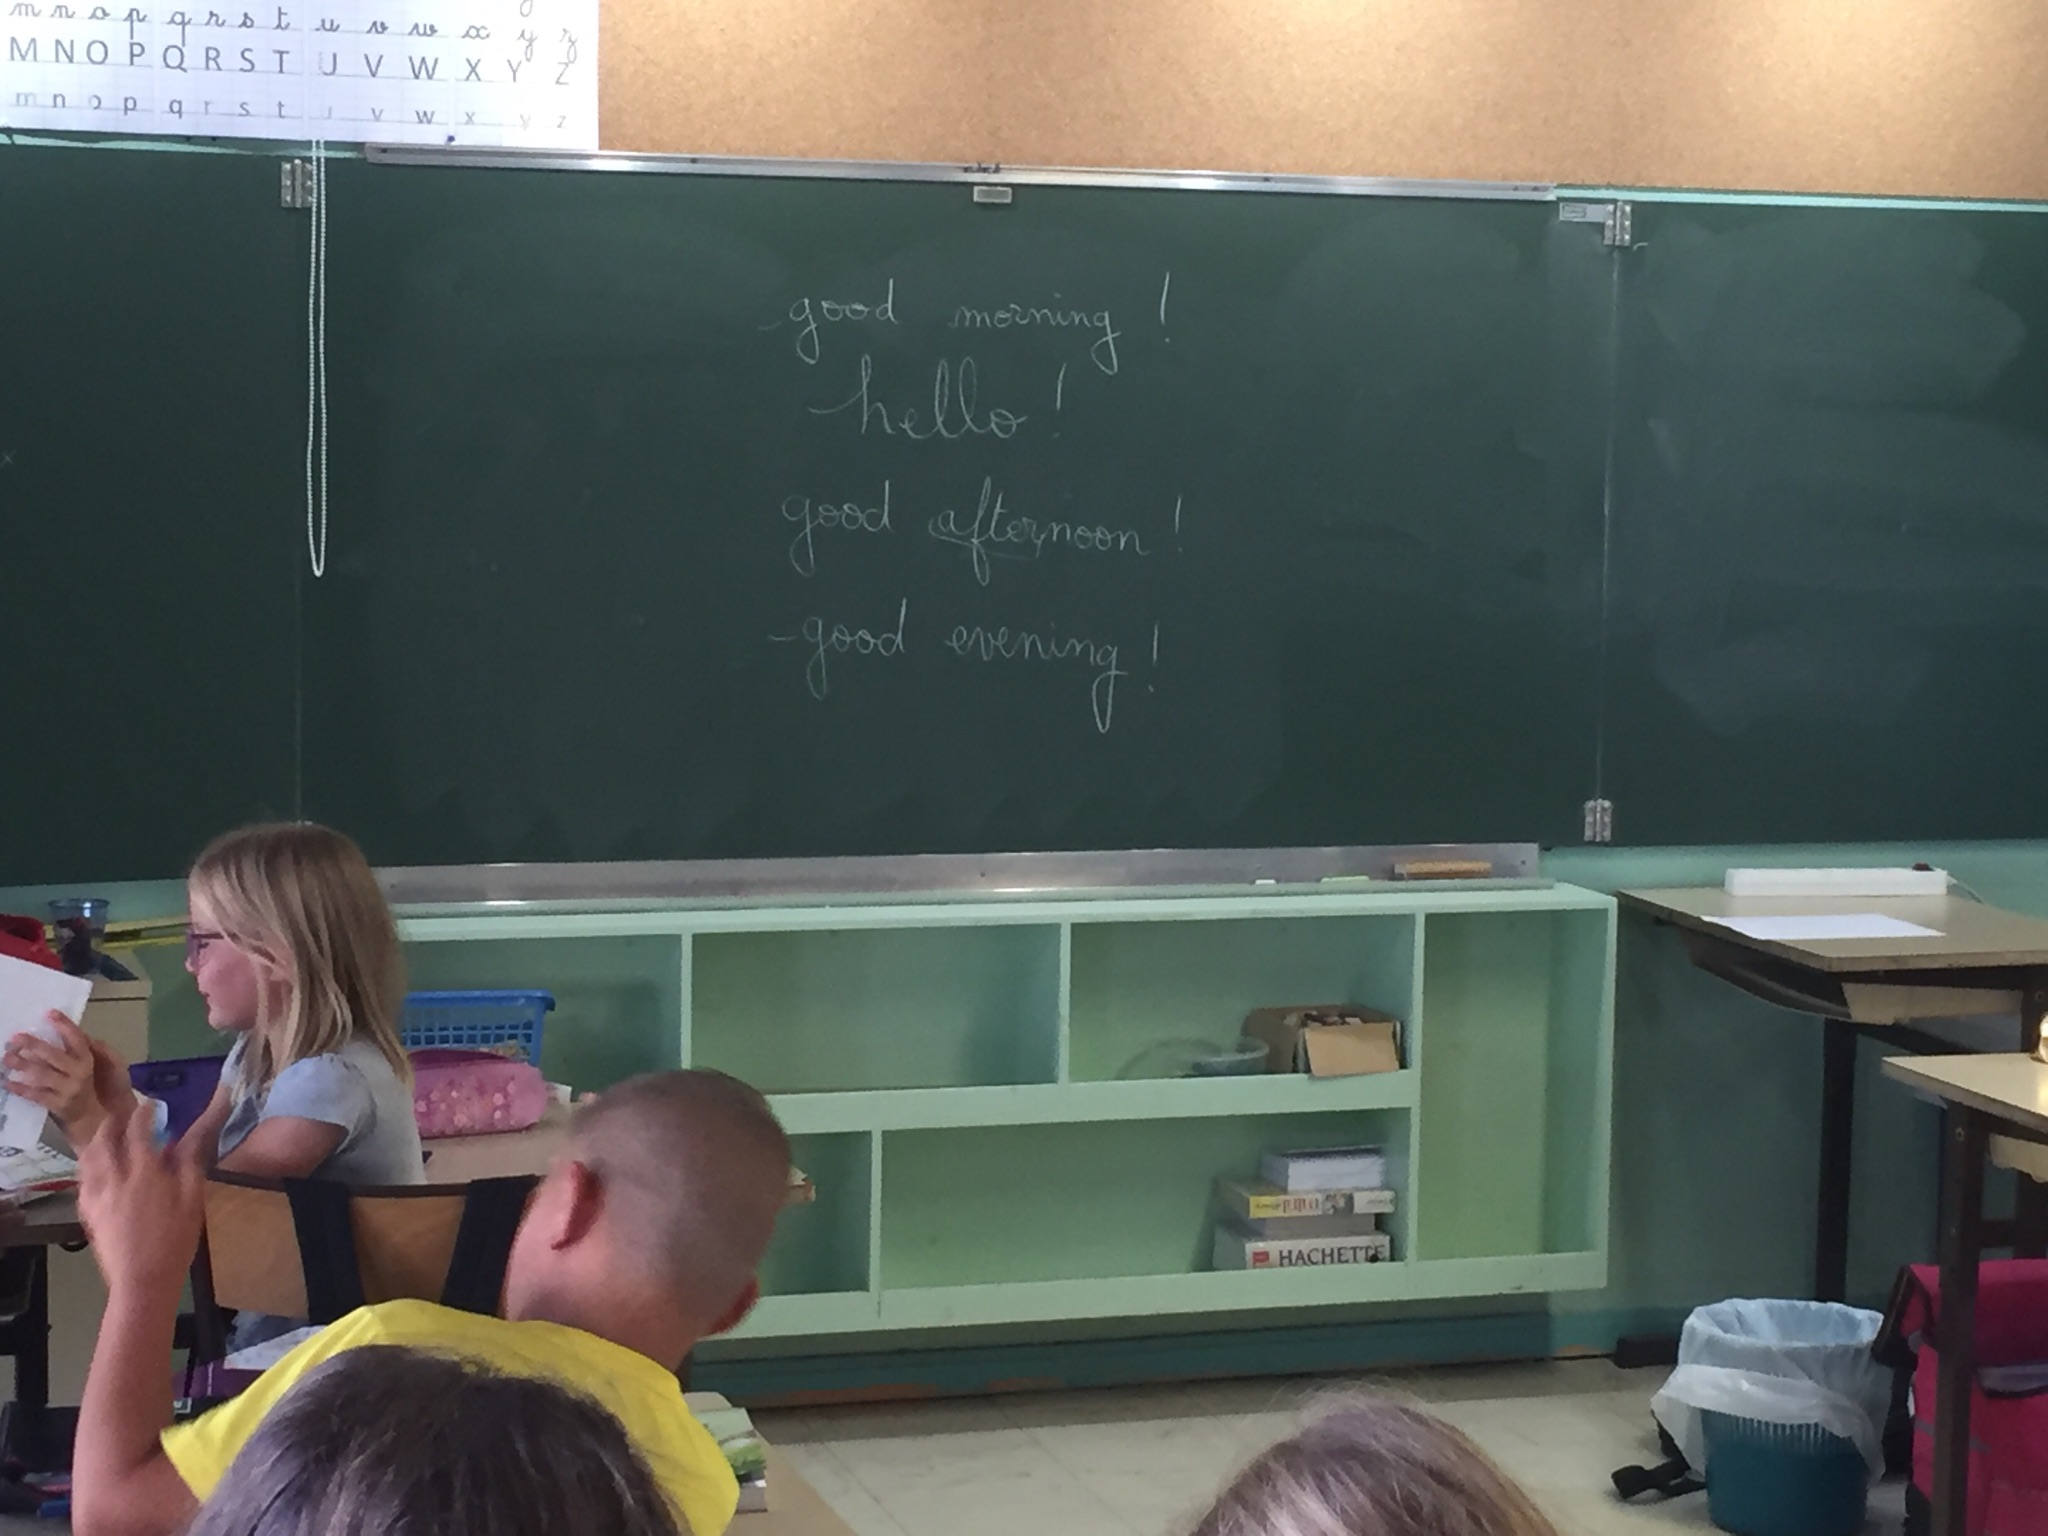 m n o p q r s t u v w x y z
M N O P Q R S T U V W X Y Z
m n o p q r s t u v w x y z
- good morning !
- hello !
good afternoon !
- good evening !
HACHETTE